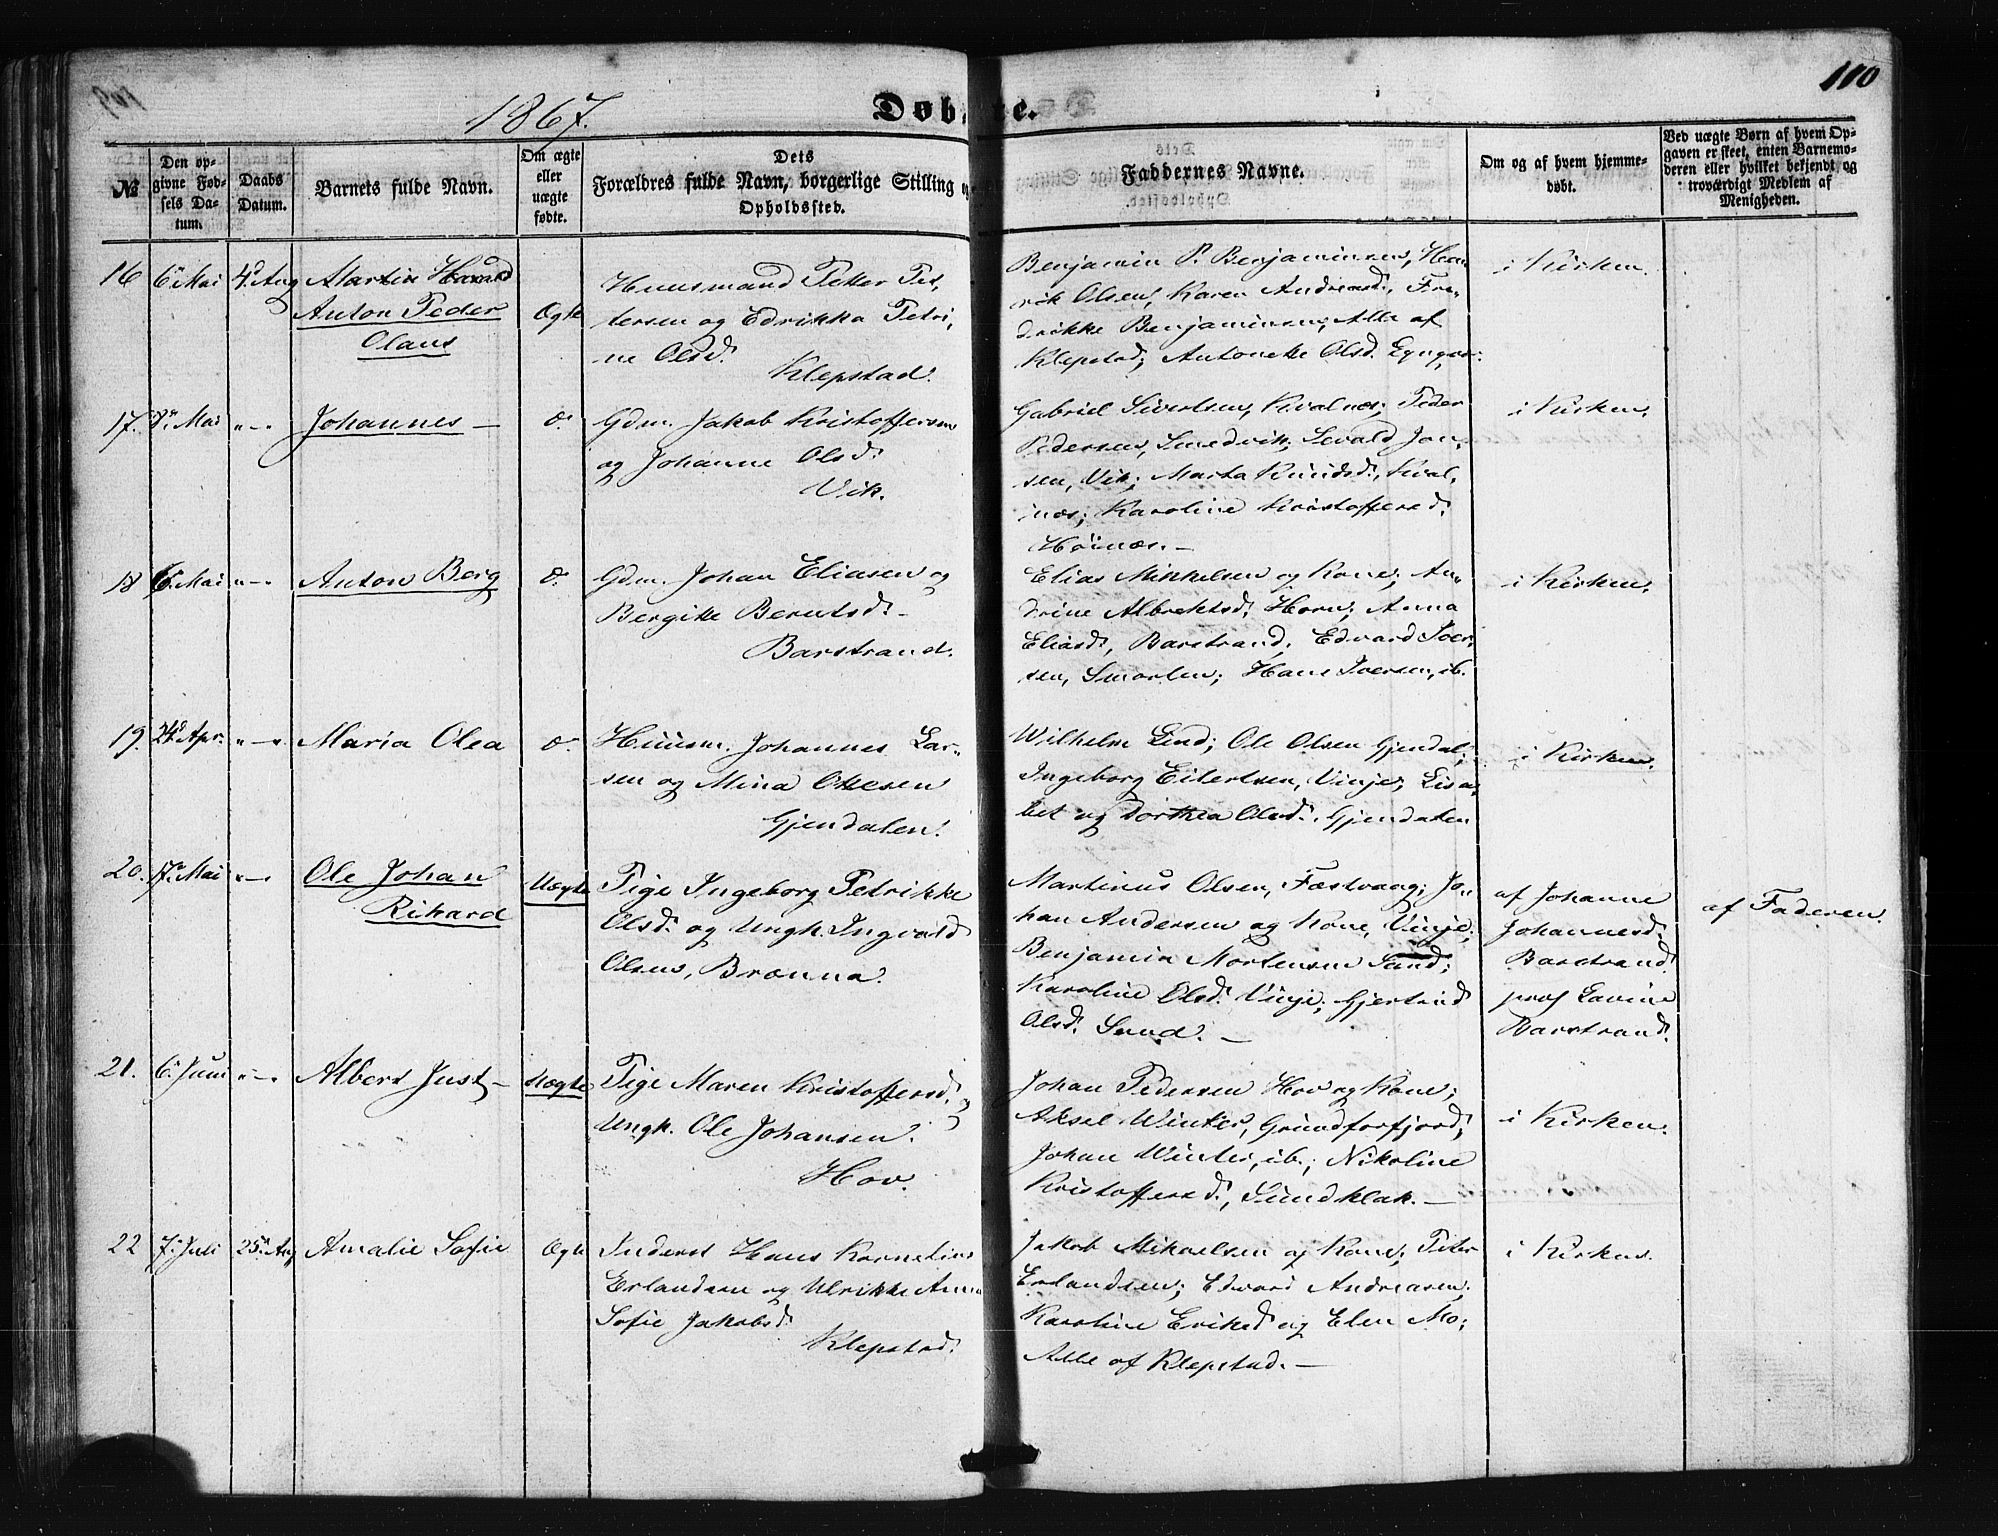 110
1867.
Døbte.
№
Den op-
givne Fød-
sels Da-
tum.
Daabs
Datum.
Barnets fulde Navn.
Om ægte
eller
uægte
fødte.
Dets
Forældres fulde Navn, borgerlige Stilling og
Opholdssted.
Faddernes Navne.
Om og af hvem hjemme-
døbt.
Ved uægte Børn af hvem Op-
gaven er skeet, enten Barnemo-
deren eller hvilket bekjendt og
troværdigt Medlem af
Menigheden.
16
6te Mai
4d Aug
Martin Harald
Anton Peder
Olaus
Ægte
Huusmand Petter Pet,
tersen og Edrikka Petri,
ne Olsd.
Klepstad.
Benjamin P. Benjaminsen, Hen
rik Olsen, Karen Andreasd., Fre-
drikke Benjaminsen, Alle af
Klepstad; Antonette Olsd.
i Kirken.
17.
Mai
"-"
Johannes —
d.
Gdm. Jakob Kristoffersen
og Johanne Olsd.
Vik.
Gabriel Sivertsen, Kvalnæs; Peder
Pedersen, Smedvik; Sevald Jon,
sen, Vik; Marta Knudsd., Kval,
næs; Karoline Kristoffersd.
Høinæs. —
i Kirken.
18
6. Mai
"-"
Anton Berg
d.
Gdm. Johan Eliasen og
Bergitte Berntsd. -
Barstrand.
Elias Mikkelsen og Kone; An-
drine Albrektsd. Horn; Anna
Eliasd., Barstrand; Edvard Iver,
sen, Smorten; Hans Iversen, ib.
i Kirken.
19.
24d Apr.
"-"
Maria Olea
d.
Huusm. Johannes Lar-
sen og Mina Olesen
Gjendalen.
Wilhelm Lind; Ole Olsen Gjendal;
Ingeborg Eilertsen, Vinje, Lisa,
bet og Dorthea Olsd. Gjendalen
i Kirken.
20.
17. Mai
"-"
Ole Johan
Rikard
Uægte
Pige Ingeborg Petrikke
Olsd. og Ungk. Ingvald
Olsen, Brænna.
Martinus Olsen, Fæstvaag; Jo,
han Andersen og Kone, Vinje;
Benjamin Mortensen Sund;
Karoline Olsd. Vinje; Gjertrud
Olsd. Sund. —
af Johanne
Johannesd.
Barstrand
Lovine
Barstrand.
af Faderen.
21.
6. Juni
"-"
Albert Just —
Uægte
Pige Maren Kristoffersd. og
Ungk. Ole Johansen.
Hov.
Johan Pedersen Hov og Kone;
Aksel Winter, Grundforfjord;
Johan Winter, ib.; Nikoline
Kristoffersd., Sundklak. —
i Kirken.
22
7. Juli
25. Aug
Amalie Sofie
Ægte
Inderst Hans Kornelius
Erlandsen og Ulrikke Anna
Sofie Jakobsd.
Klepstad.
Jakob Mikaelsen og Kone; Peter
Erlandsen; Edvard Andreasen;
Karoline Eriksd. og Elen Mo;
Alle af Klepstad. —
i Kirken.